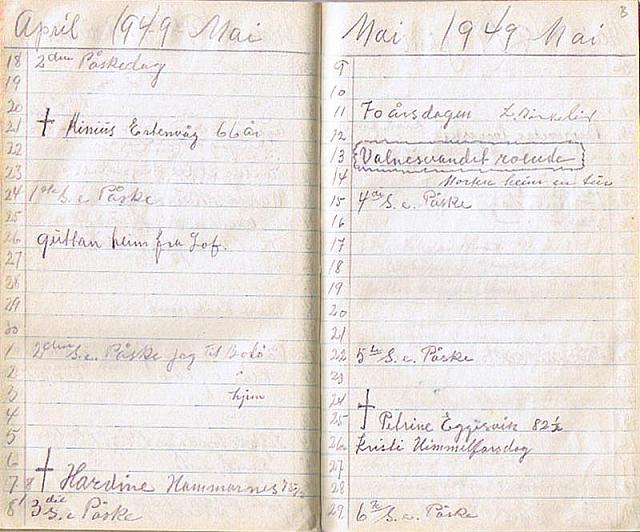 April 1949 - Mai
18 2den Påskedag
19
20
21 † Minius Estenvåg 66 år
22
23
24 1ste S. e. Påske
25
26 guttan heim fra Lof.
27
28
29
30
1 2den S. e. Påske jag til Bodö
2
3 hjem
4
5
6
7 † Hardine Hammarnes
8 3die S. e. Påske
Mai 1949 Mai
3
9
10
11 70 årsdagen
12
13 Valnesvandet
14 heim en tur
15 4de S. e. Påske
16
17
18
19
20
21
22 5te S. e. Påske
23
24
25 † Petrine Eggesvik 82½
26 Kristi Himmelfartsdag
27
28
29 6te S. e. Påske